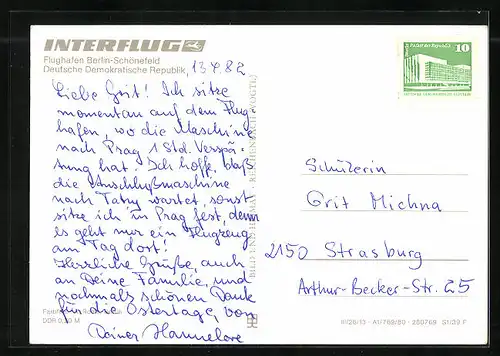 INTERFLUG
Flughafen Berlin-Schönefeld
Deutsche Demokratische Republik, 13.4.82
Liebe Grit! Ich sitze
momentan auf dem Flug-
hafen, wo die Maschine
nach Prag 1 Std. Verspä-
tung hat. Ich hoffe, daß
die Anschlußmaschine
nach Tatry wartet, sonst
sitze ich in Prag fest, denn
es geht nur ein Flugzeug
am Tag dort!
Herzliche Grüße, auch
an Deine Familie, und
nochmals schönen Dank
für die Ostertage, von
Deiner Hannelore
DDR 0,20 M
10
Schülerin
Grit Michna
2150 Strasburg
Arthur-Becker-Str. 25
III/26/13 · A1/769/80 · 250768